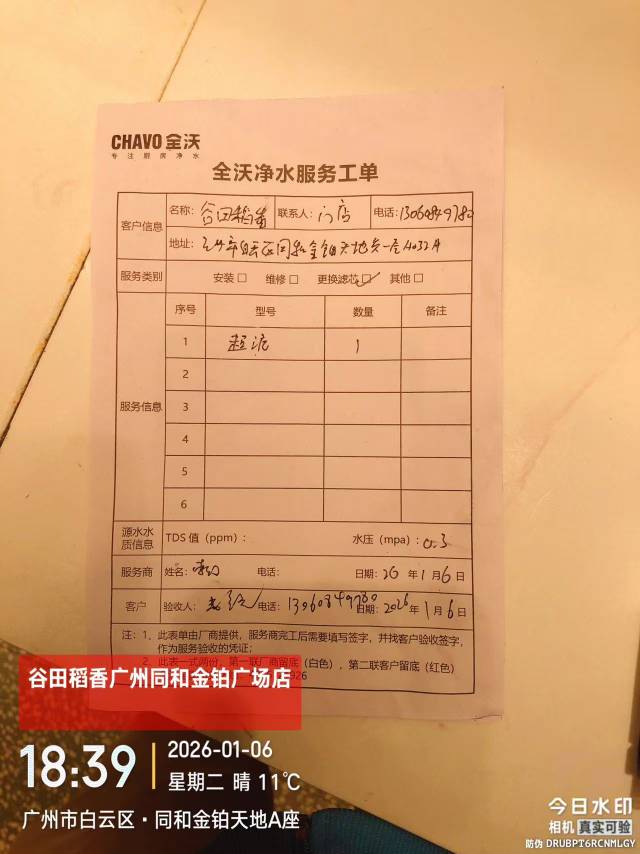 CHAVO 全沃
专注厨房净水
全沃净水服务工单
客户信息 名称：谷田稻香 联系人：门店 电话：
地址：广州市白云区同和金铂天地负一层A032A
服务类别 安装□ 维修□ 更换滤芯□✓ 其他□
服务信息 序号 型号 数量 备注
1 超滤 1
2
3
4
5
6
源水水质信息 TDS 值（ppm）： 水压（mpa）：0.3
服务商 姓名： 电话： 日期：26 年 1 月 6 日
客户 验收人： 电话：13060849780 日期：2026 年 1 月 6 日
注：1、此表单由厂商提供，服务商完工后需要填写签字，并找客户验收签字，
作为服务验收的凭证；
2、此表一式两份，第一联厂商留底（白色），第二联客户留底（红色）
026
谷田稻香广州同和金铂广场店
18:39
2026-01-06
星期二 晴 11℃
广州市白云区·同和金铂天地A座
今日水印
相机 真实可验
防伪 DRUBPT6RCNMLGY